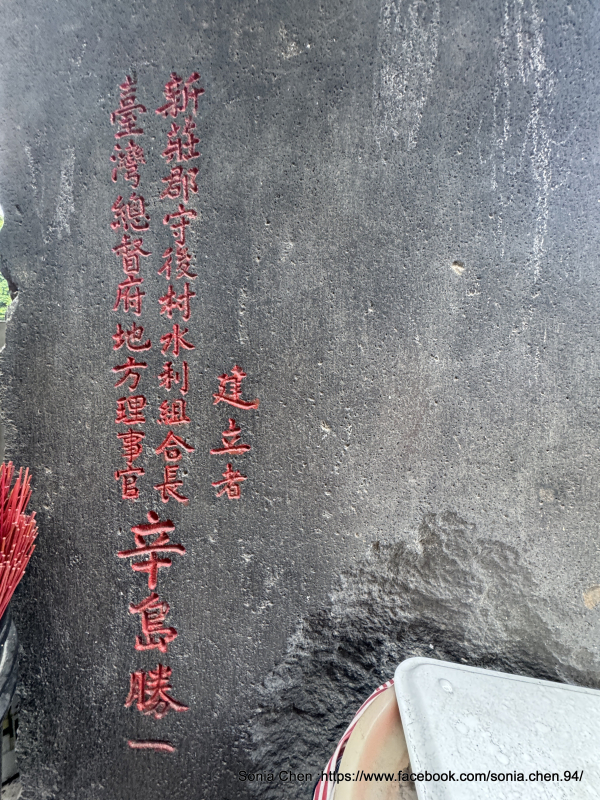 建立者
新莊郡守後村水利組合長
臺灣總督府地方理事官
辛島勝一
Sonia Chen :https://www.facebook.com/sonia.chen.94/